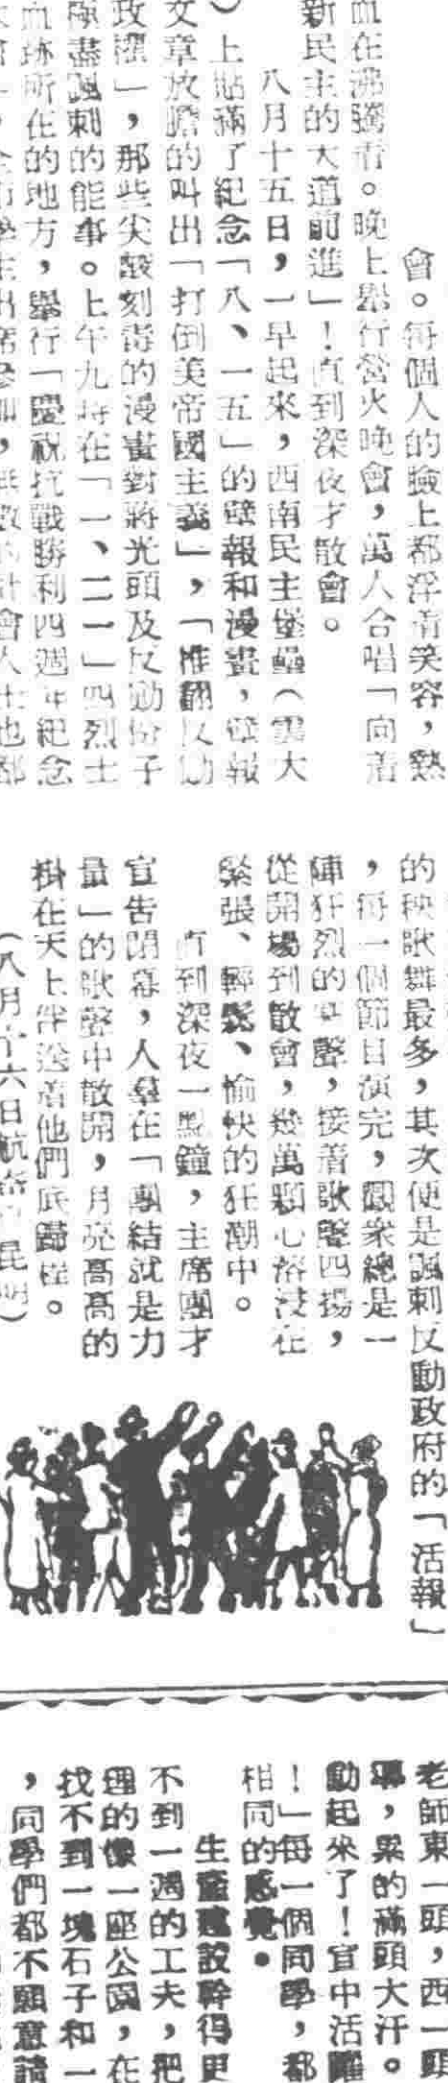 會。每個人的臉上都浮着笑容，熱
血在沸騰着。晚上舉行營火晚會，萬人合唱「向着
新民主的大道前進」！直到深夜才散會。
八月十五日，一早起來，西南民主堡壘（雲大
）上貼滿了紀念「八、一五」的壁報和漫畫，壁報
文章放膽的叫出「打倒美帝國主義」，「推翻反動
政權」，那些尖酸刻毒的漫畫對蔣光頭及反動份子
極盡諷刺的能事。上午九時在「一、二一」四烈士
血跡所在的地方，舉行「慶祝抗戰勝利四週年紀念
出席參加，會人士也都
的秧歌舞最多，其次便是諷刺反動政府的「活報」
，每一個節目演完，觀衆總是一
陣狂烈的掌聲，接着歌聲四揚，
從開場到散會，幾萬顆心溶浸在
緊張、輕鬆、愉快的狂潮中。
直到深夜一點鐘，主席團才
宣告閉幕，人羣在「團結就是力
量」的歌聲中散開，月亮高高的
掛在天上伴送着他們底歸程。
（八月十六日航寄
老師東一頭，西一頭
，累的滿頭大汗。
動起來了！宣中活躍
！」每一個同學，都
相同的感覺。
生產建設幹得更
不到一週的工夫，把
理的像一座公園，在
找不到一塊石子和一
，同學們都不願意請